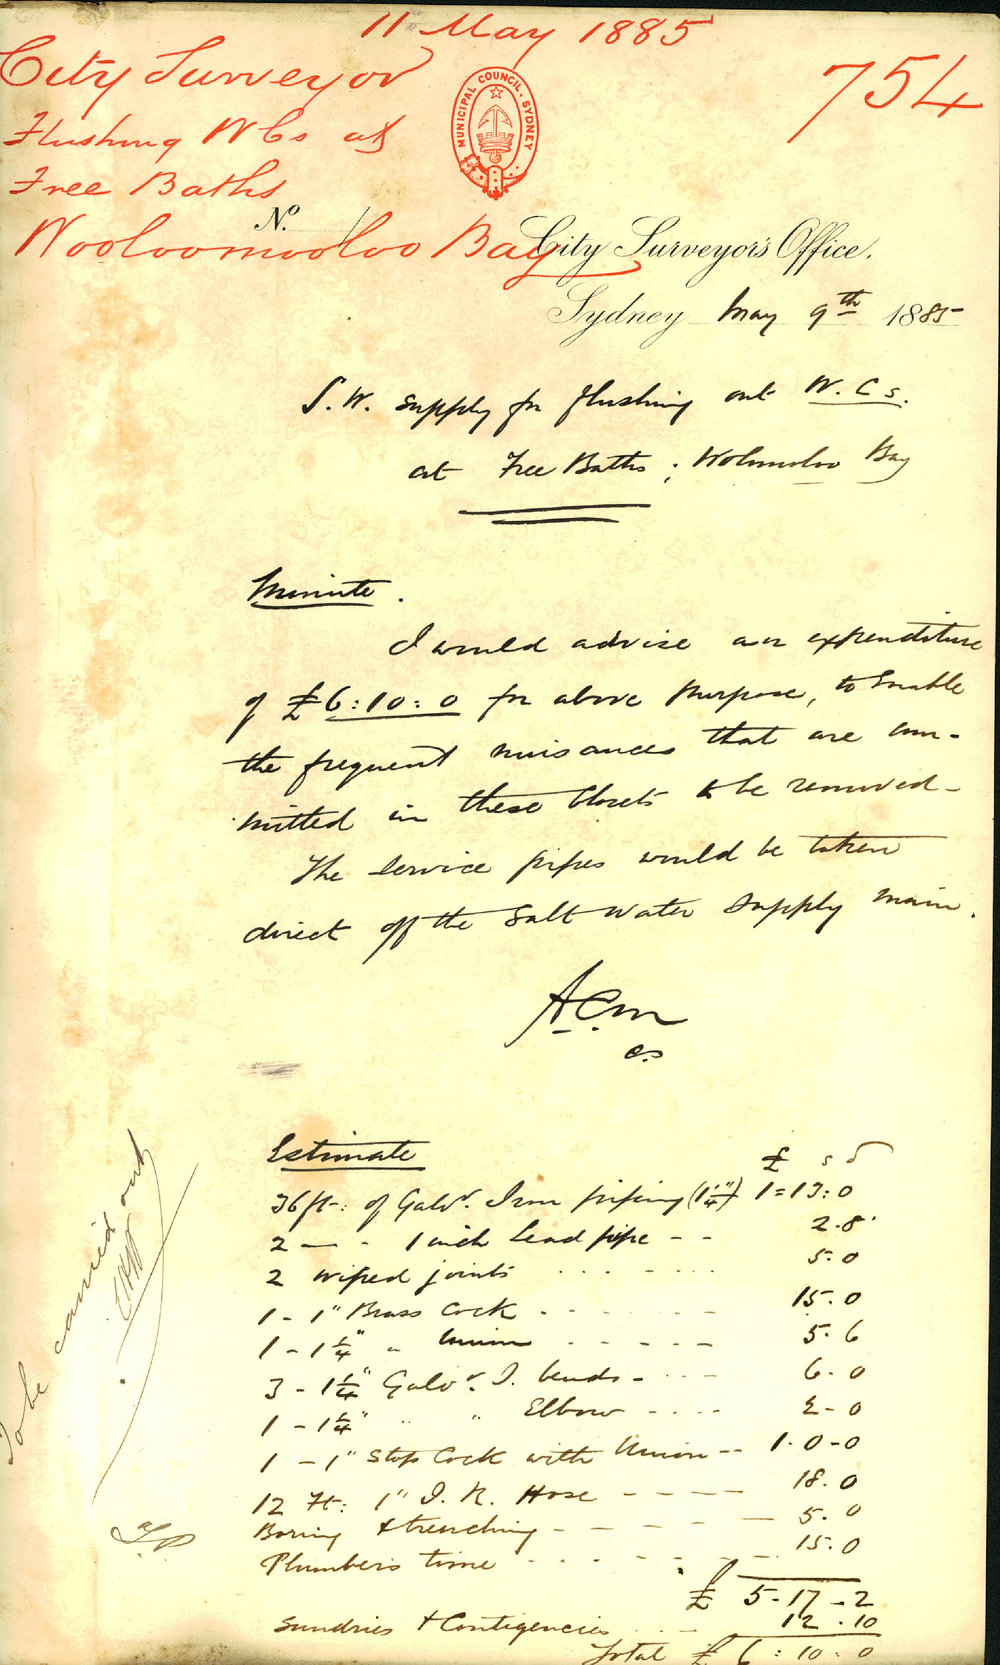 11 May 1885
City Surveyor
754
MUNICIPAL COUNCIL. SYDNEY
Flushing W Cs at
Free Baths
No.
Wooloomooloo Bay
City Surveyor's Office.
Sydney May 9th 1885
S.W. supply for flushing out W. C s.
at Free Baths; Wolomoloo Bay
Minute.
I would advise an expenditure
of £6:10:0 for above purpose, to enable
the frequent nuisances that are com-
mitted in these Closets to be removed-
The service pipes would be taken
direct off the Salt Water Supply main.
A.C.M
C.S
Estimate £ s d
36 ft: of Galvd. Iron piping (1¼") 1=13:0
2 — " 1 inch Lead pipe - - 2.8
2 wiped joints 5.0
1 - 1" Brass Cock 15.0
1 - 1¼" " Union 5.6
3 - 1¼" Galvd. I. bends - 6.0
1 - 1¼" " " Elbow 2-0
1 - 1" Stop Cock with Union -- 1.0-0
12 Ft: 1" I. R. Hose 18.0
Boring & trenching - 5.0
Plumbers time 15.0
£ 5-17-2
Sundries & Contigencies 12.10
Total £ 6:10:0
To be carried out